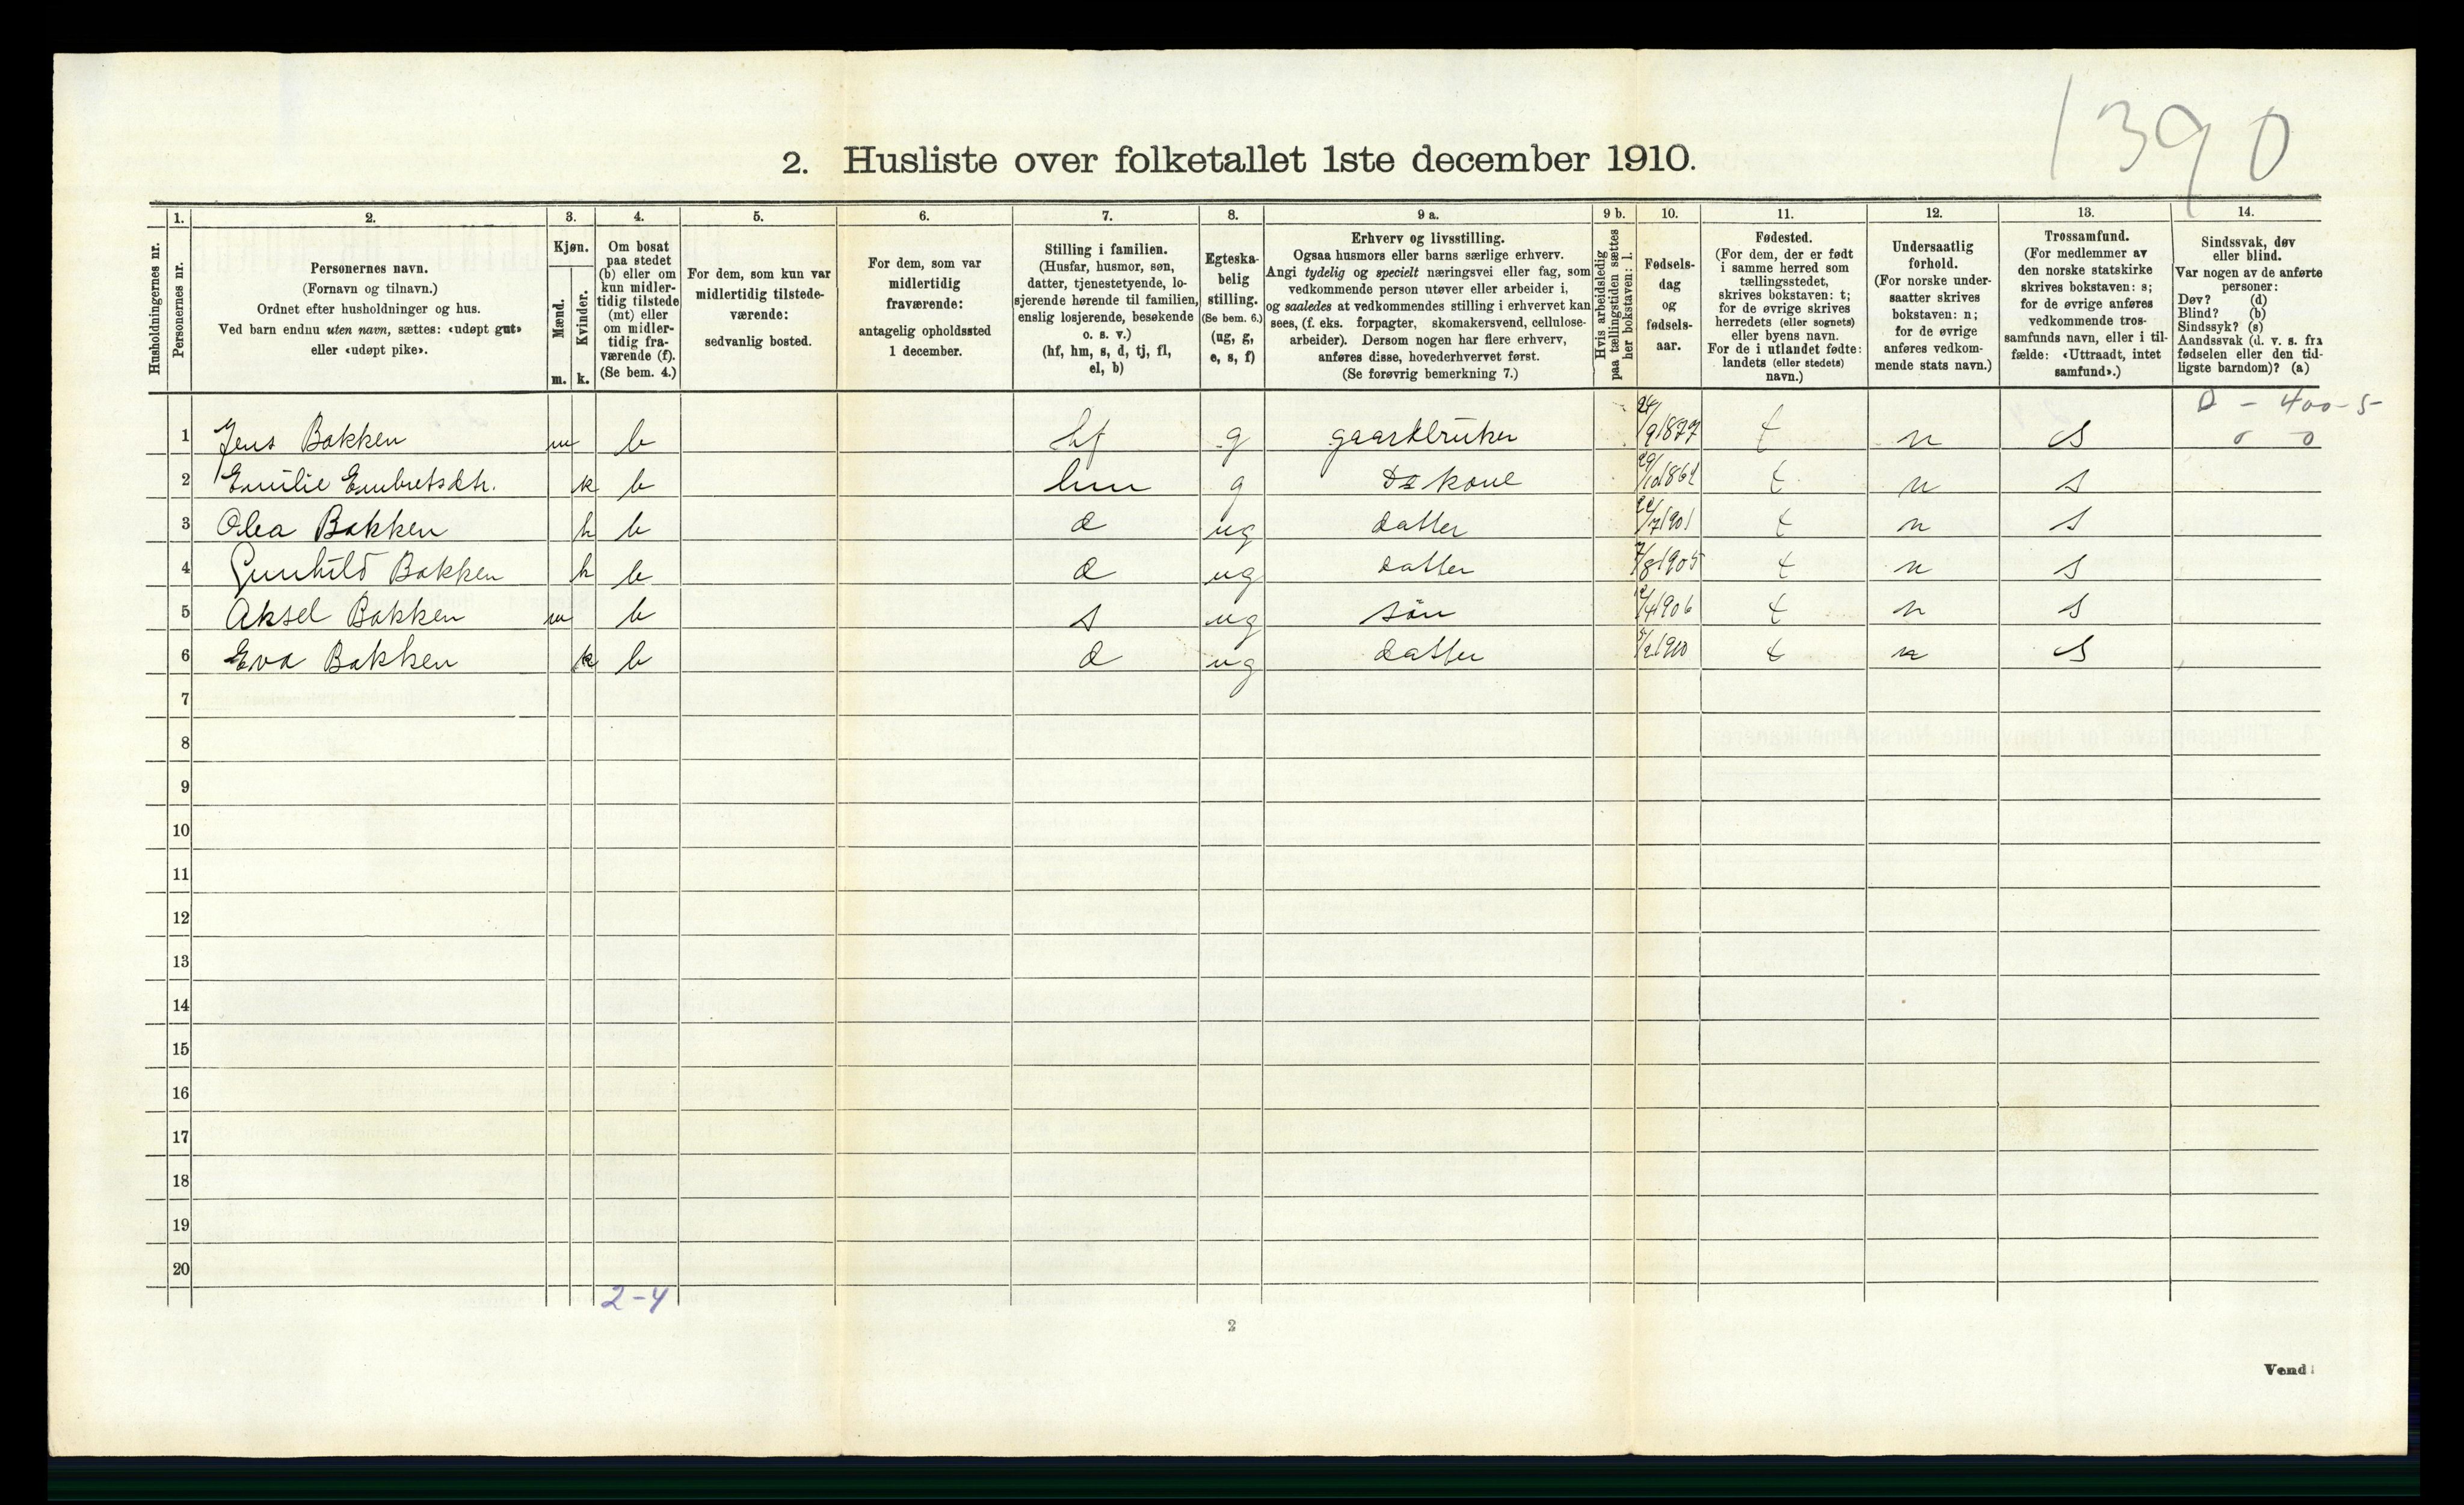 1390
2. Husliste over folketallet 1ste december 1910.
Husholdningernes nr.
1.
Personernes nr.
2.
Personernes navn.
(Fornavn og tilnavn.)
Ordnet efter husholdninger og hus.
Ved barn endnu uten navn, sættes: «udøpt gut»
eller «udøpt pike».
3.
Kjøn.
Mænd.
m.
Kvinder.
k.
4.
Om bosat
paa stedet
(b) eller om
kun midler-
tidig tilstede
(mt) eller
om midler-
tidig fra-
værende (f).
(Se bem. 4.)
5.
For dem, som kun var
midlertidig tilstede-
værende:
sedvanlig bosted.
6.
For dem, som var
midlertidig
fraværende:
antagelig opholdssted
1 december.
7.
Stilling i familien.
(Husfar, husmor, søn,
datter, tjenestetyende, lo-
sjerende hørende til familien,
enslig losjerende, besøkende
o. s. v.)
(hf, hm, s, d, tj, fl,
el, b)
8.
Egteska-
belig
stilling.
(Se bem. 6.)
(ug, g,
e, s, f)
9 a.
Erhverv og livsstilling.
Ogsaa husmors eller barns særlige erhverv.
Angi tydelig og specielt næringsvei eller fag, som
vedkommende person utøver eller arbeider i,
og saaledes at vedkommendes stilling i erhvervet kan
sees, (f. eks. forpagter, skomakersvend, cellulose-
arbeider). Dersom nogen har flere erhverv,
anføres disse, hovederhvervet først.
(Se forøvrig bemerkning 7.)
9 b.
Hvis arbeidsledig
paa tællingstiden sættes
her bokstaven: l.
10.
Fødsels-
dag
og
fødsels-
aar.
11.
Fødested.
(For dem, der er født
i samme herred som
tællingsstedet,
skrives bokstaven: t;
for de øvrige skrives
herredets (eller sognets)
eller byens navn.
For de i utlandet fødte:
landets (eller stedets)
navn.)
12.
Undersaatlig
forhold.
(For norske under-
saatter skrives
bokstaven: n;
for de øvrige
anføres vedkom-
mende stats navn.)
13.
Trossamfund.
(For medlemmer av
den norske statskirke
skrives bokstaven: s;
for de øvrige anføres
vedkommende tros-
samfunds navn, eller i til-
fælde: «Uttraadt, intet
samfund».)
14.
Sindssvak, døv
eller blind.
Var nogen av de anførte
personer:
Døv? (d)
Blind? (b)
Sindssyk? (s)
Aandssvak (d. v. s. fra
fødselen eller den tid-
ligste barndom)? (a)
- 400-5-
1 Jens Bakken m b hf g gaardbruker 24/9 1877 t n s 0 0
2 Emilie Embretsdtr. k b hm g Ds kone t n s
3 Olea Bakken k b d ug datter 1901 t n s
4 Gunhild Bakken k b d ug datter 7/8 1905 t n s
5 Aksel Bakken m b s ug søn 1906 t n s
6 Eva Bakken k b d ug datter 1910 t n s
7
8
9
10
11
12
13
14
15
16
17
18
19
20
2-4
2
Vend